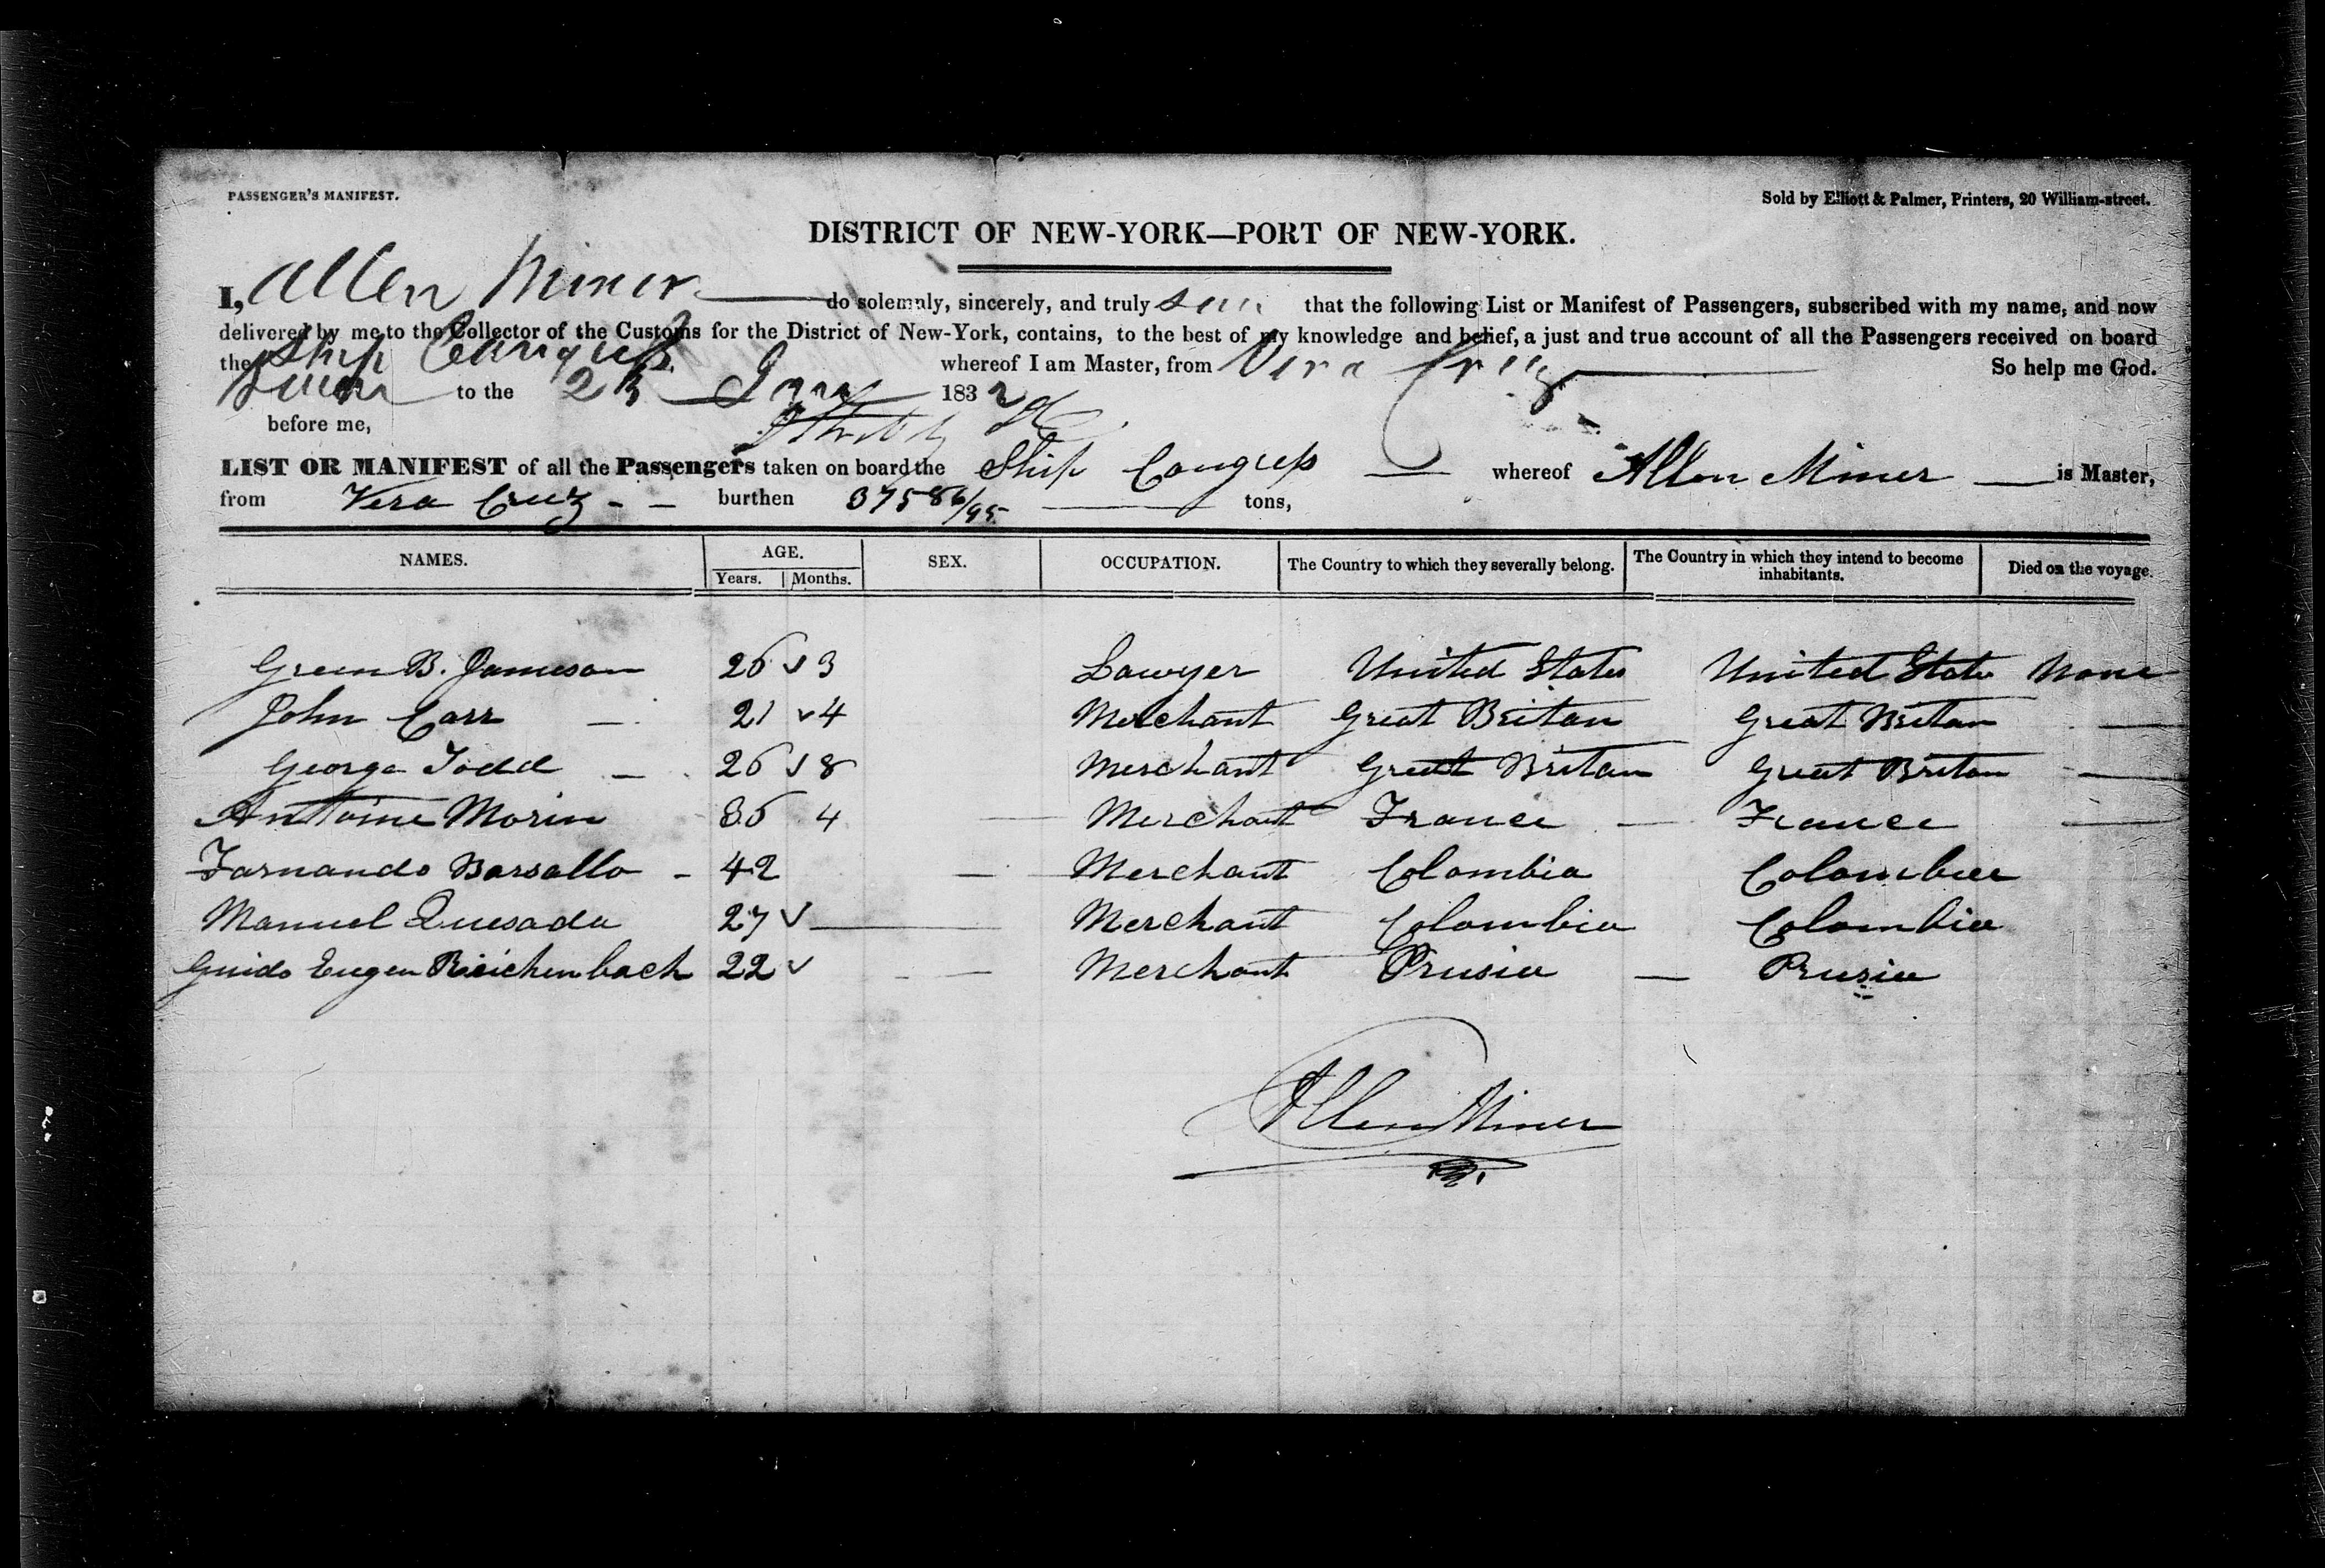 PASSENGER'S MANIFEST.
Sold by Elliott & Palmer, Printers, 20 William-street.
DISTRICT OF NEW-YORK—PORT OF NEW-YORK.
I, Allen Miner do solemnly, sincerely, and truly that the following List or Manifest of Passengers, subscribed with my name, and now
delivered by me to the Collector of the Customs for the District of New-York, contains, to the best of my knowledge and belief, a just and true account of all the Passengers received on board
the Ship Congress whereof I am Master, from Vera Cruz So help me God.
Sworn to the 23 Jany 1832
before me,
LIST OR MANIFEST of all the Passengers taken on board the Ship Congress whereof Allen Miner is Master,
from Vera Cruz burthen 375 86/95 tons,
NAMES. AGE. SEX. OCCUPATION. The Country to which they severally belong. The Country in which they intend to become inhabitants. Died on the voyage.
Years. Months.
Green B. Jameson 26 3 Lawyer United States United States None
John Carr 21 4 Merchant Great Britan Great Britan
George Todd 26 8 Merchant Great Britan Great Britan
Antoine Morin 36 4 Merchant France France
Farnando Barsallo 42 Merchant Colombia Colombia
Manuel Quesada 27 Merchant Colombia Colombia
Guido Eugen Reichenbach 22 Merchant Prusia Prusia
Allen Miner